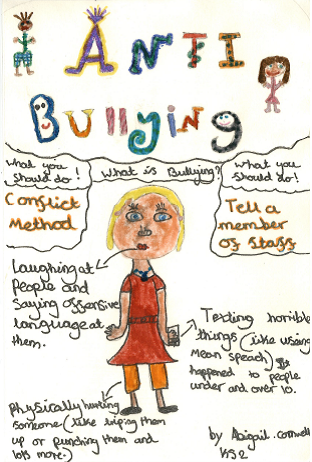 ANTI
Bullying
What you
should do!
Conflict
Method
What is Bullying?
What you
should do!
Tell a
member
of staff
Laughing at
people and
saying offensive
language at
them.
Texting horrible
things (like using
mean speach)
happened to people
under and over 10.
Physically hurting
someone (like triping them
up or punching them and
lots more.)
by Abigail.
KS2